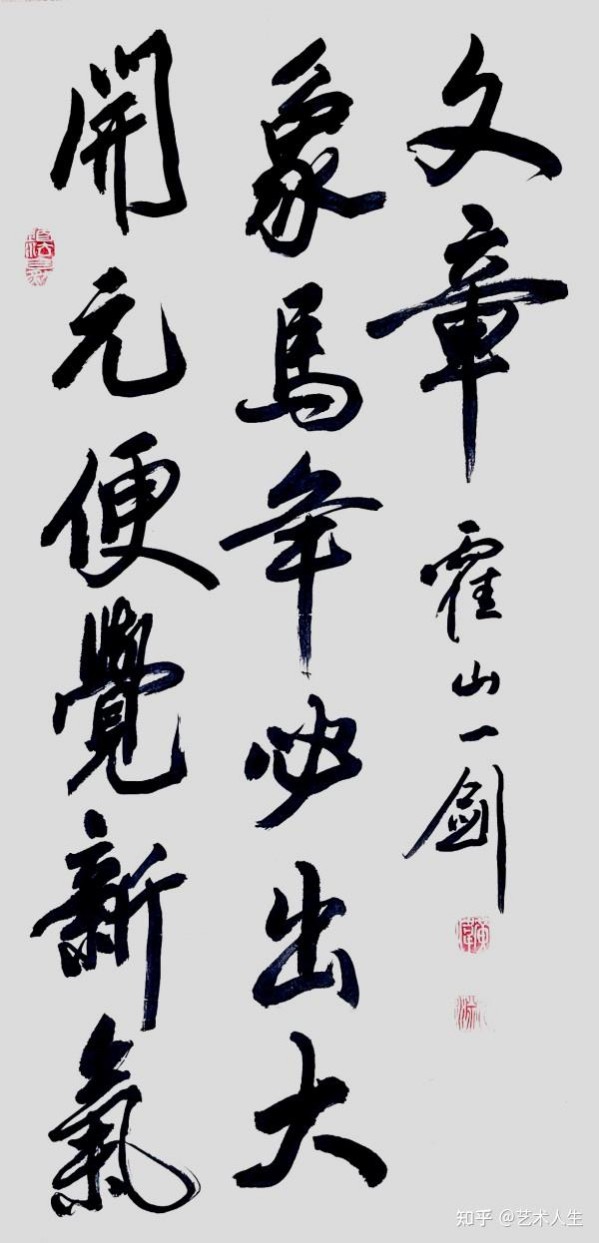 開元便覺新氣
象馬年必出大
文章
霍山一劍
知乎 @艺术人生